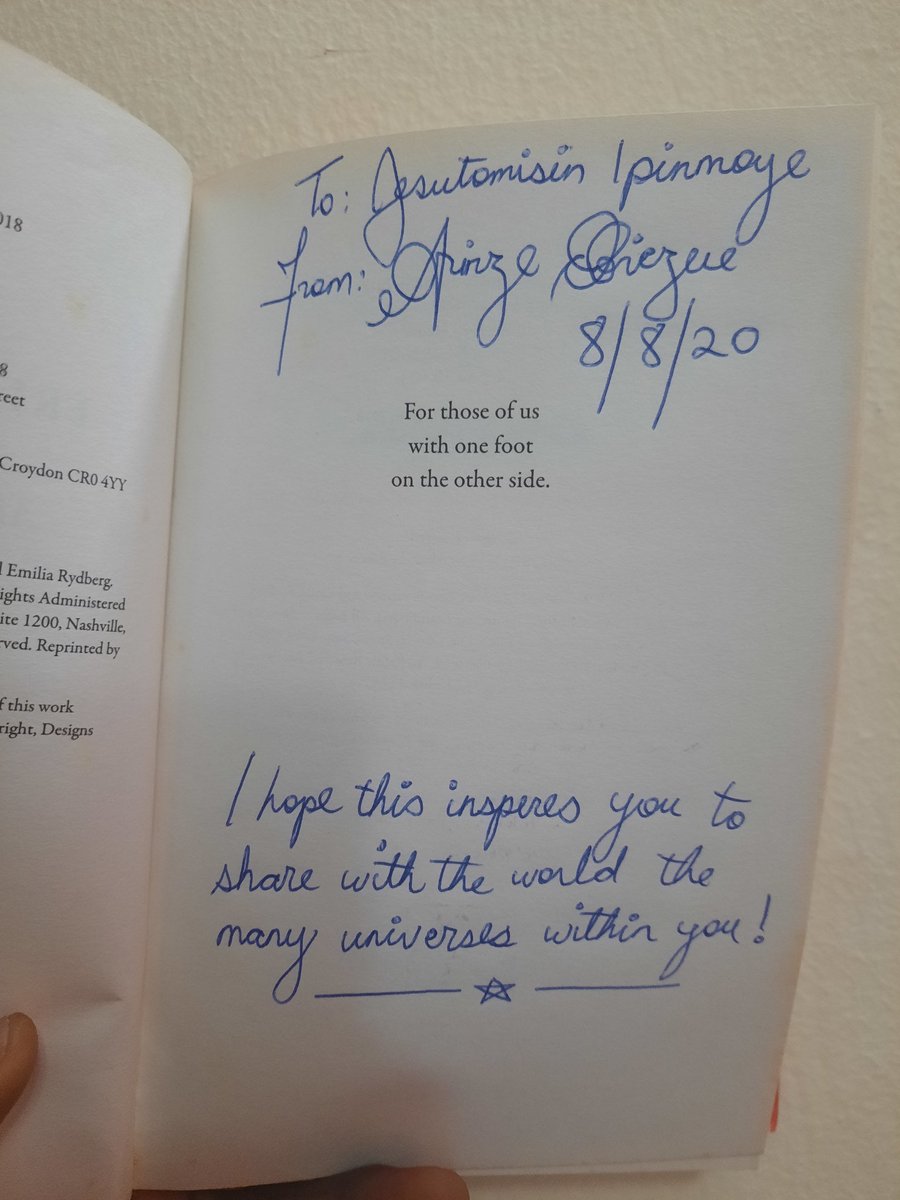 018
8
reet
Croydon CR0 4YY
l Emilia Rydberg.
ights Administered
ite 1200, Nashville,
rved. Reprinted by
f this work
right, Designs
To: Jesutomisin Ipinmoye
From: Arinze
8/8/20
For those of us
with one foot
on the other side.
I hope this inspires you to
share with the world the
many universes within you!